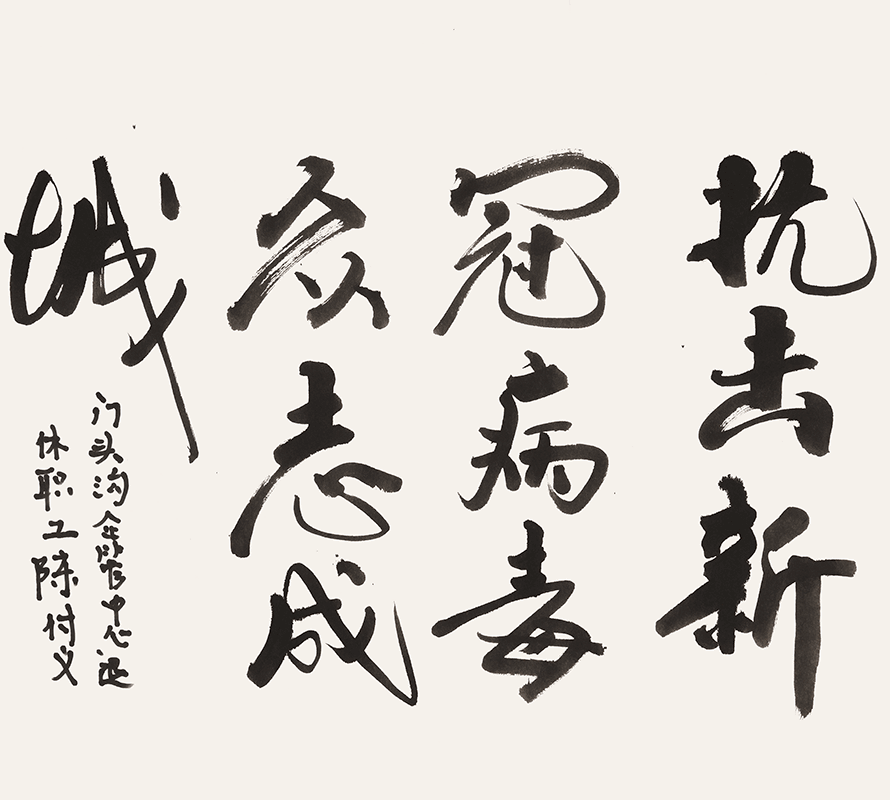 抗击新
冠病毒
众志成
城
门头沟管中心退
休职工陈付义